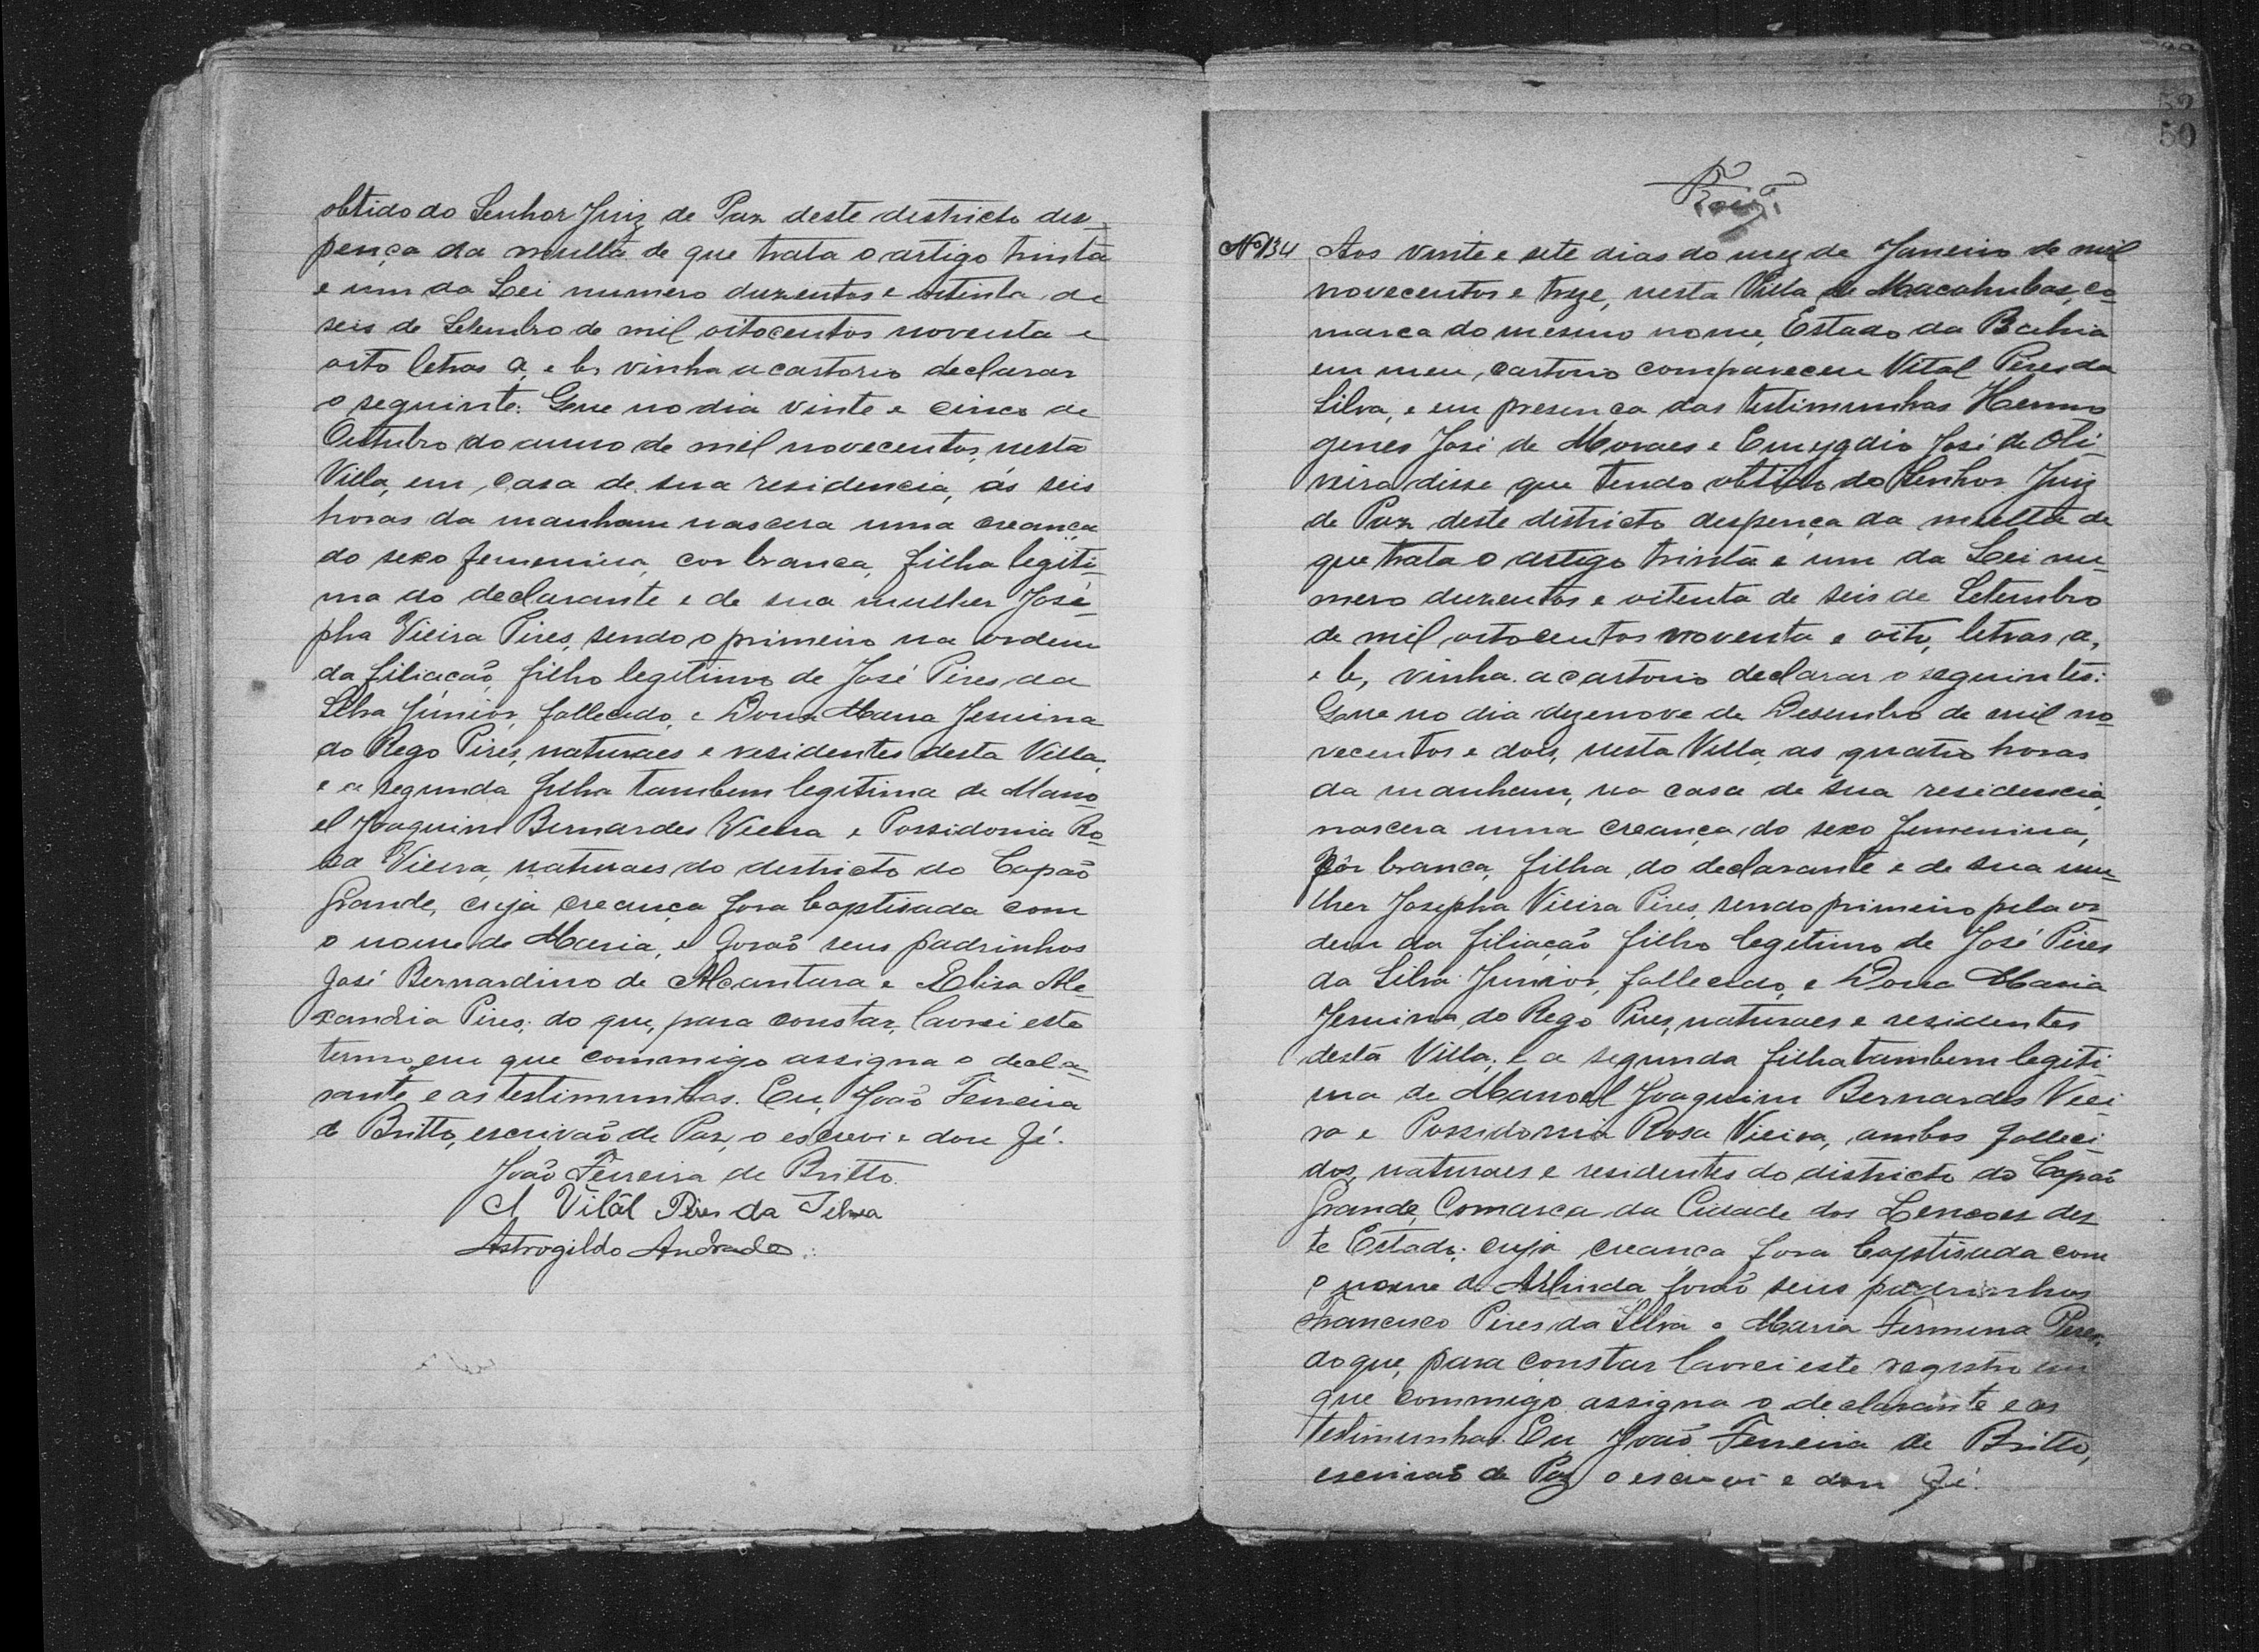 obtido do Senhor Juiz de Paz deste destricto des-
pença da multa de que trata o artigo trinta
e um da Lei numero duzentos e oitenta, de
seis de Setembro de mil oitocentos noventa e
oito letras a, e b, vinha a cartorio declarar
o seguinte: Que no dia vinte e cinco de
Outubro do anno de mil novecentos, nesta
Villa, em casa de sua residencia, ás seis
horas da manham nascera uma creança
do sexo femenina, cor branca, filha legiti-
ma do declarante e de sua mulher José-
pha Vieira Pires, sendo o primeiro na ordem
da filiacão, filho legitimo de José Pires da
Silva Júnior, fallecido, e Dona Maria Jesuina
do Rego Pires, naturaes e residentes desta Villa,
e a segunda filha tambem legitima de Mano-
el Joaquim Bernardes Vieira e Possidonia Ro-
sa Vieira, naturaes do destricto do Capão
Grande, cuja creança fora baptisada com
o nome de Maria, e forão seus padrinhos
José Bernardino de Alcantara e Elisa Ale-
xandria Pires; do que, para constar, lavrei este
termo, em que commigo assigna o decla-
rante e as testimunhas. Eu, João Ferreira
de Britto, escrivão de Paz, o escrevi e dou fé.
João Ferreira de Britto.
Vital Pires da Silva
Astrogildo Andrade
52
50
No 134 Aos vinte e sete dias do mez de Janeiro de mil
novecentos e treze, nesta Villa de Macahubas, co-
marca do mesmo nome, Estado da Bahia
em meu, cartorio compareceu Vital Pires da
Silva, e em presença das testimunhas Hermo
genes José de Moraes e Emygdio José de Oli-
veira disse que tendo obtido do Senhor Juiz
de Paz deste districto despença da multa de
que trata o artigo trinta e um da Lei nu-
mero duzentos e oitenta de seis de Setembro
de mil oitocentos noventa e oito, letras a,
e b, vinha a cartorio declarar o seguintes:
Que no dia dezenove de Desembro de mil no-
vecentos e dois, nesta Villa, as quatro horas
da manham, na casa de sua residencia,
nascera uma creança, do sexo femenina,
côr branca, filha, do declarante e de sua mu-
lher Josepha Vieira Pires, sendo primeiro pela or-
dem da filiação filho legitimo de José Pires
da Silva Junior, fallecido, e Dona Maria
Jesuina do Rego Pires, naturaes e residentes
desta Villa; e a segunda filha tambem legiti-
ma de Manoel Joaquim Bernardes Viei-
ra e Possidonia Rosa Vieira, ambos falleci-
dos, naturaes e residentes do districto do Capão
Grande, Comarca da Cidade dos Lençoes des-
te Estado; cuja creança fora baptisada com
o nome de Arlinda forão seus padrinhos
Francisco Pires da Silva e Maria Firmina Pires,
do que, para constar lavrei este registro em
que commigo assigna o declarante e as
testimunhas. Eu João Ferreira de Britto,
escrivão de Paz o escrevi e dou fé.